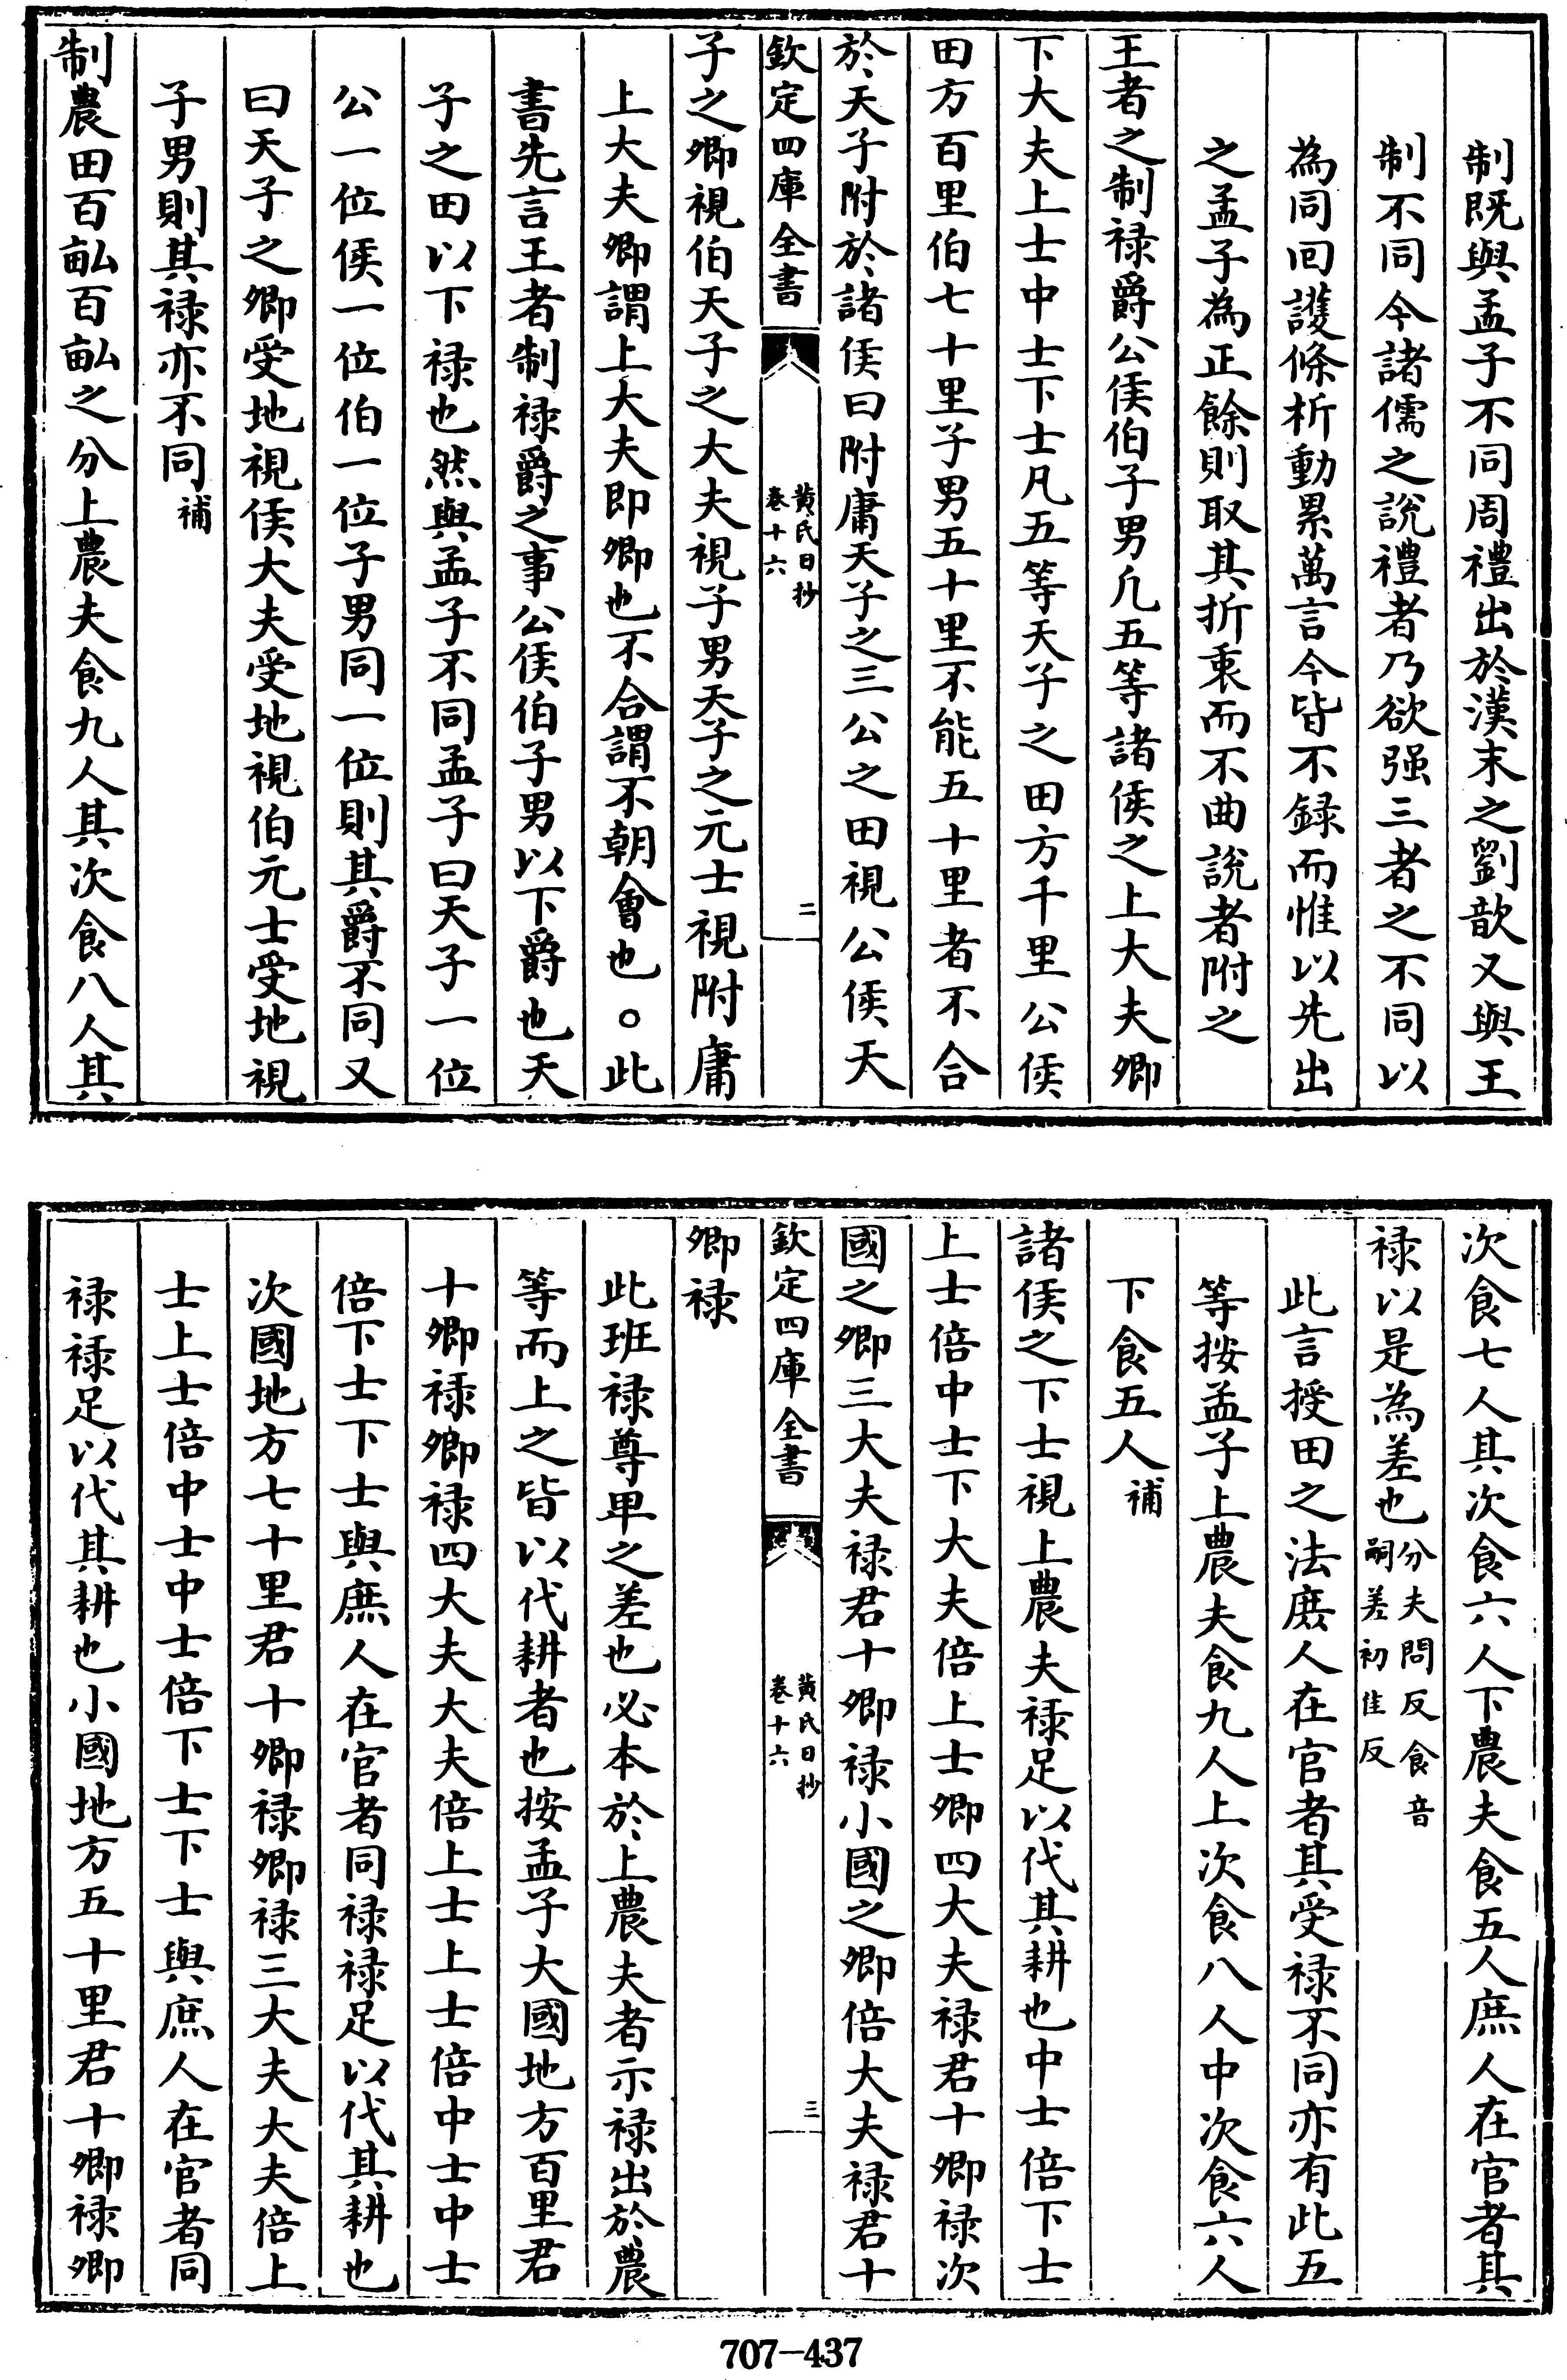 制既與孟子不同周禮出於漢末之劉歆又與王
制不同今諸儒之說禮者乃欲强三者之不同以
為同回護條析動累萬言今皆不録而惟以先出
之孟子為正餘則取其折衷而不曲說者附之
王者之制禄爵公侯伯子男凡五等諸侯之上大夫卿
下大夫上士中士下士凡五等天子之田方千里公侯
田方百里伯七十里子男五十里不能五十里者不合
於天子附於諸侯曰附庸天子之三公之田視公侯天
欽定四庫全書
黄氏日抄
卷十六
二
子之卿視伯天子之大夫視子男天子之元士視附庸
上大夫卿謂上大夫即卿也不合謂不朝會也○此
書先言王者制禄爵之事公侯伯子男以下爵也天
子之田以下禄也然與孟子不同孟子曰天子一位
公一位侯一位伯一位子男同一位則其爵不同又
曰天子之卿受地視侯大夫受地視伯元士受地視
子男則其禄亦不同補
制農田百畝百畝之分上農夫食九人其次食八人其
次食七人其次食六人下農夫食五人庶人在官者其
禄以是為差也分夫問反食音嗣差初佳反
此言授田之法庶人在官者其受禄不同亦有此五
等按孟子上農夫食九人上次食八人中次食六人
下食五人補
諸侯之下士視上農夫禄足以代其耕也中士倍下士
上士倍中士下大夫倍上士卿四大夫禄君十卿禄次
國之卿三大夫禄君十卿禄小國之卿倍大夫禄君十
欽定四庫全書
黄氏日抄
卷十六
三
卿禄
此班禄尊卑之差也必本於上農夫者示禄出於農
等而上之皆以代耕者也按孟子大國地方百里君
十卿禄卿禄四大夫大夫倍上士上士倍中士中士
倍下士下士與庶人在官者同禄禄足以代其耕也
次國地方七十里君十卿禄卿禄三大夫大夫倍上
士上士倍中士中士倍下士下士與庶人在官者同
禄禄足以代其耕也小國地方五十里君十卿禄卿
707-437